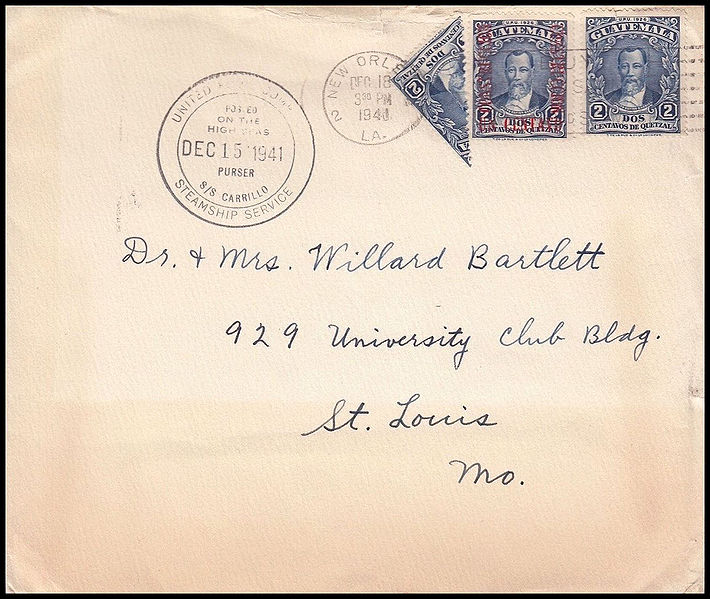 UNITED
POSTED
ON THE
HIGH SEAS
DEC 15 1941
PURSER
S/S CARRILLO
STEAMSHIP SERVICE
2 NEW ORL
DEC 18
3 30 PM
1941
LA.
DOS
CENTAVOS DE QUETZAL
2
U.P.U. 1926
GUATEMALA
2 2
DOS
U.P.U. 1926
GUATEMALA
2 2
DOS
CENTAVOS DE QUETZAL
Dr. + Mrs. Willard Bartlett
929 University Club Bldg.
St. Louis
Mo.